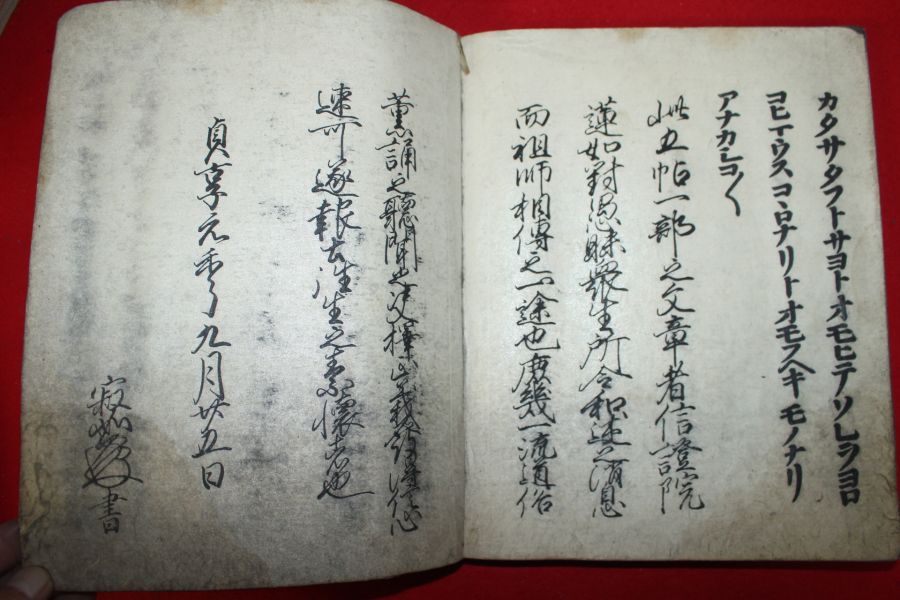 カタサタフトサヨトオモヒテソレヲヨロ
コヒマウスコヽロナリトオモフヘキモノナリ
アナカシコ〳〵
此五帖一部之文章者信證院
蓮如對愚昧衆生所令和述之消息
而祖師相傳之一途也庶幾一流道俗
薫誦之聽聞之決擇
速可遂報土往生之素懷者也
貞享元年九月廿五日
寂如 書